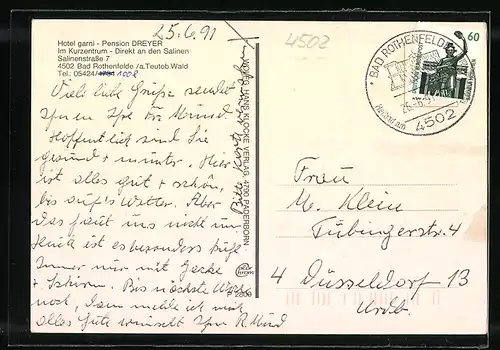 25.6.91
Hotel garni - Pension DREYER
Im Kurzentrum - Direkt an den Salinen
Salinenstraße 7
4502 Bad Rothenfelde /a.Teutob.Wald
Tel.: 05424/ 1008
Viele liebe Grüße sendet
Ihnen Ihre R. Münd
Hoffentlich sind Sie
gesund + munter. Hier
ist alles gut + schön,
bis aufs Wetter. Aber
das haut uns nicht um
Heute ist es besonders kühl
Immer nur mit Jacke
+ Schirm. Bis nächste Woche
noch, dann melde ich mich
alles Gute wünscht Ihn R. Münd
Bitte
VERLAG HANS KLOCKE VERLAG, 4790 PADERBORN
4502
BAD ROTHENFELDE
Heilbad am
4502
60
Frau
M. Klein
Tübingerstr. 4
4 Düsseldorf 13
Urdb.